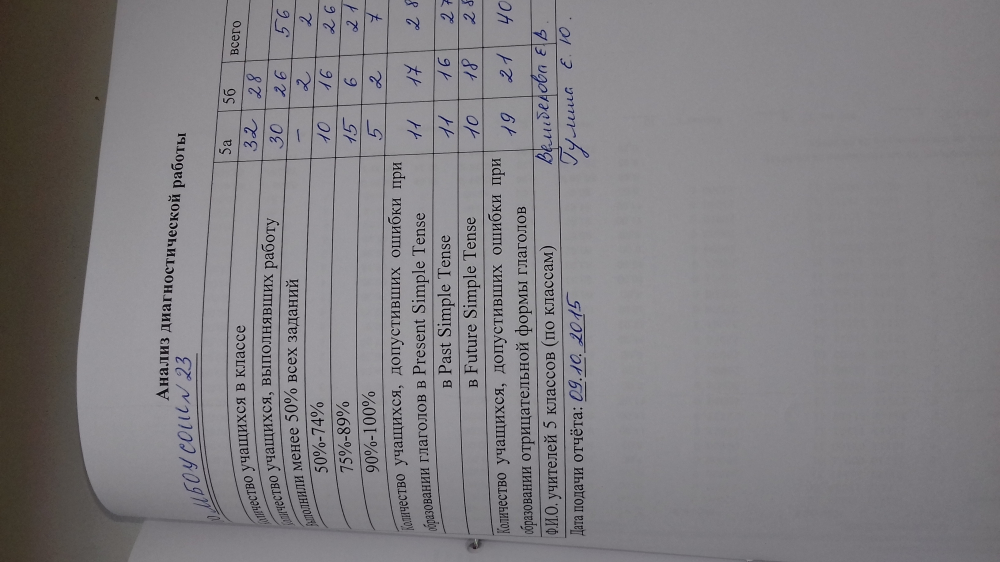 Анализ диагностической работы
МБОУ СОШ № 23
5а 5б всего
Количество учащихся в классе 32 28
Количество учащихся, выполнявших работу 30 26 56
Выполнили менее 50% всех заданий – 2 2
50%-74% 10 16 26
75%-89% 15 6 21
90%-100% 5 2 7
Количество учащихся, допустивших ошибки при
образовании глаголов в Present Simple Tense 11 17 28
в Past Simple Tense 11 16 27
в Future Simple Tense 10 18 28
Количество учащихся, допустивших ошибки при
образовании отрицательной формы глаголов 19 21 40
Ф.И.О. учителей 5 классов (по классам) Е.В.
Дата подачи отчёта: 09.10.2015 Е.Ю.